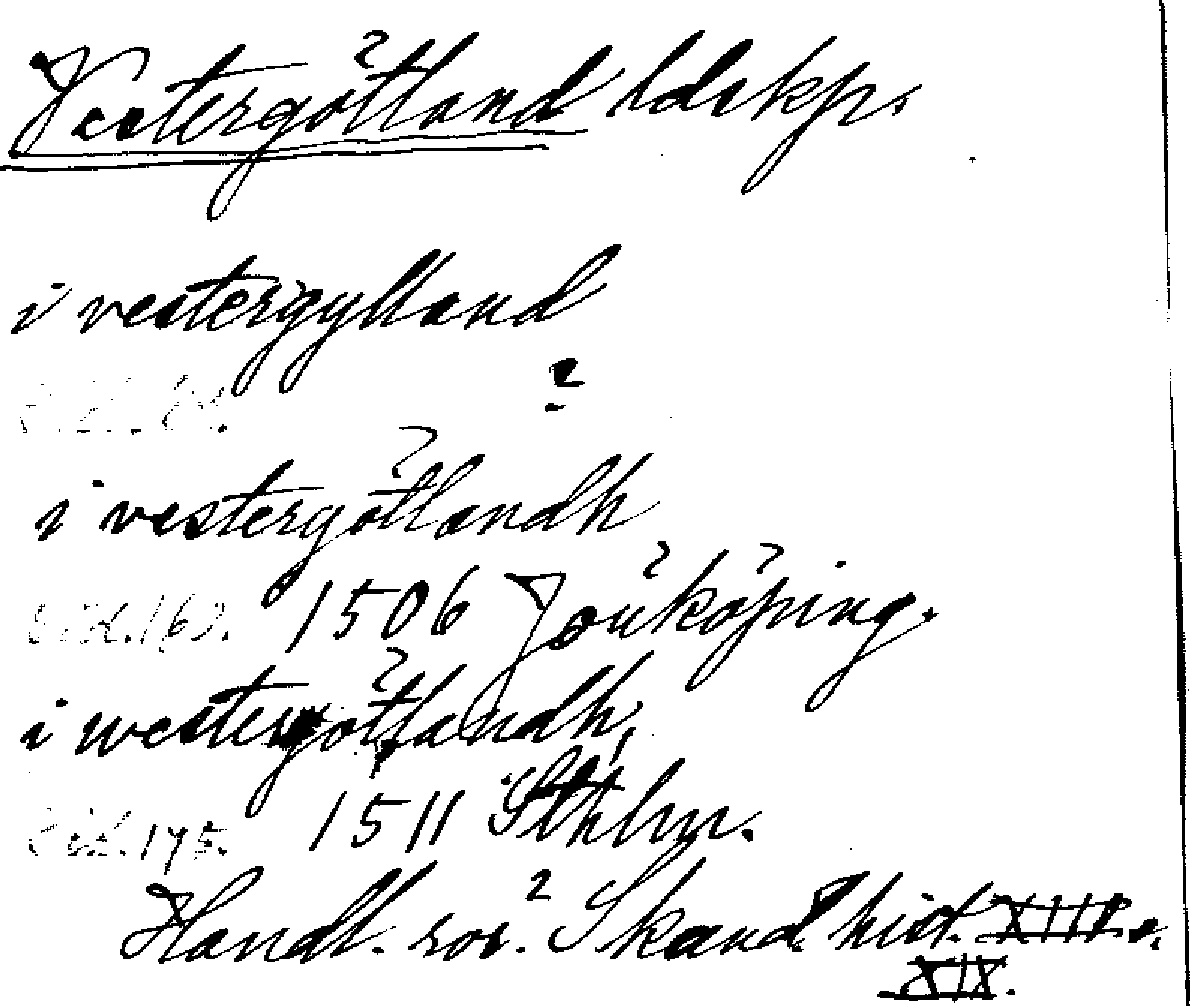 Vestergötland ldskp.
i vestergylland
?
i vestergötlandh
sid. 160. 1506 Jönköping.
i westergötlandh,
sid. 175. 1511 Sthlm.
Handl. rör. Skand. hist. XIII. o.
XIX.